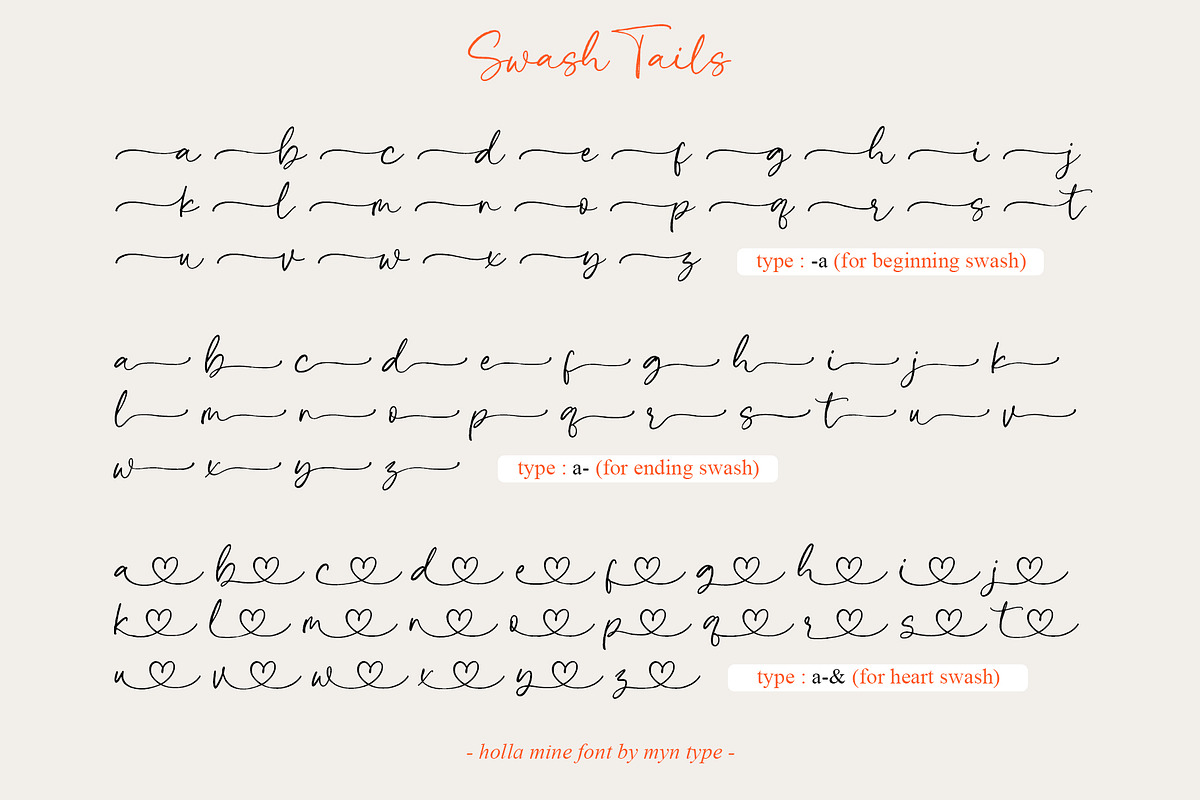 Swash Tails
a b c d e f g h i j
k l m n o p q r s t
u v w x y z type : -a (for beginning swash)
a b c d e f g h i j k
l m n o p q r s t u v
w x y z type : a- (for ending swash)
a b c d e f g h i j
k l m n o p q r s t
u v w x y z type : a-& (for heart swash)
- holla mine font by myn type -